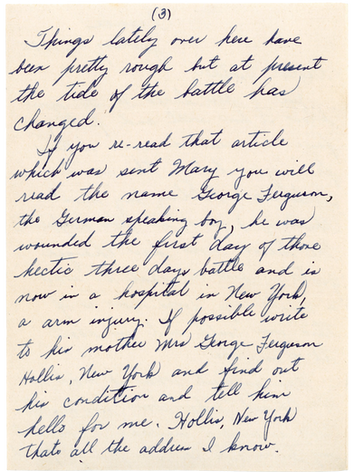 (3)
Things lately over here have
been pretty rough but at present
the tide of the battle has
changed.
If you re-read that article
which was sent Mary you will
read the name George Ferguson,
the German speaking boy, he was
wounded the first day of those
hectic three days battle and is
now in a hospital in New York,
a arm injury. If possible write
to his mother Mrs George Ferguson
Hollis, New York and find out
his condition and tell him
hello for me. Hollis, New York
thats all the address I know.